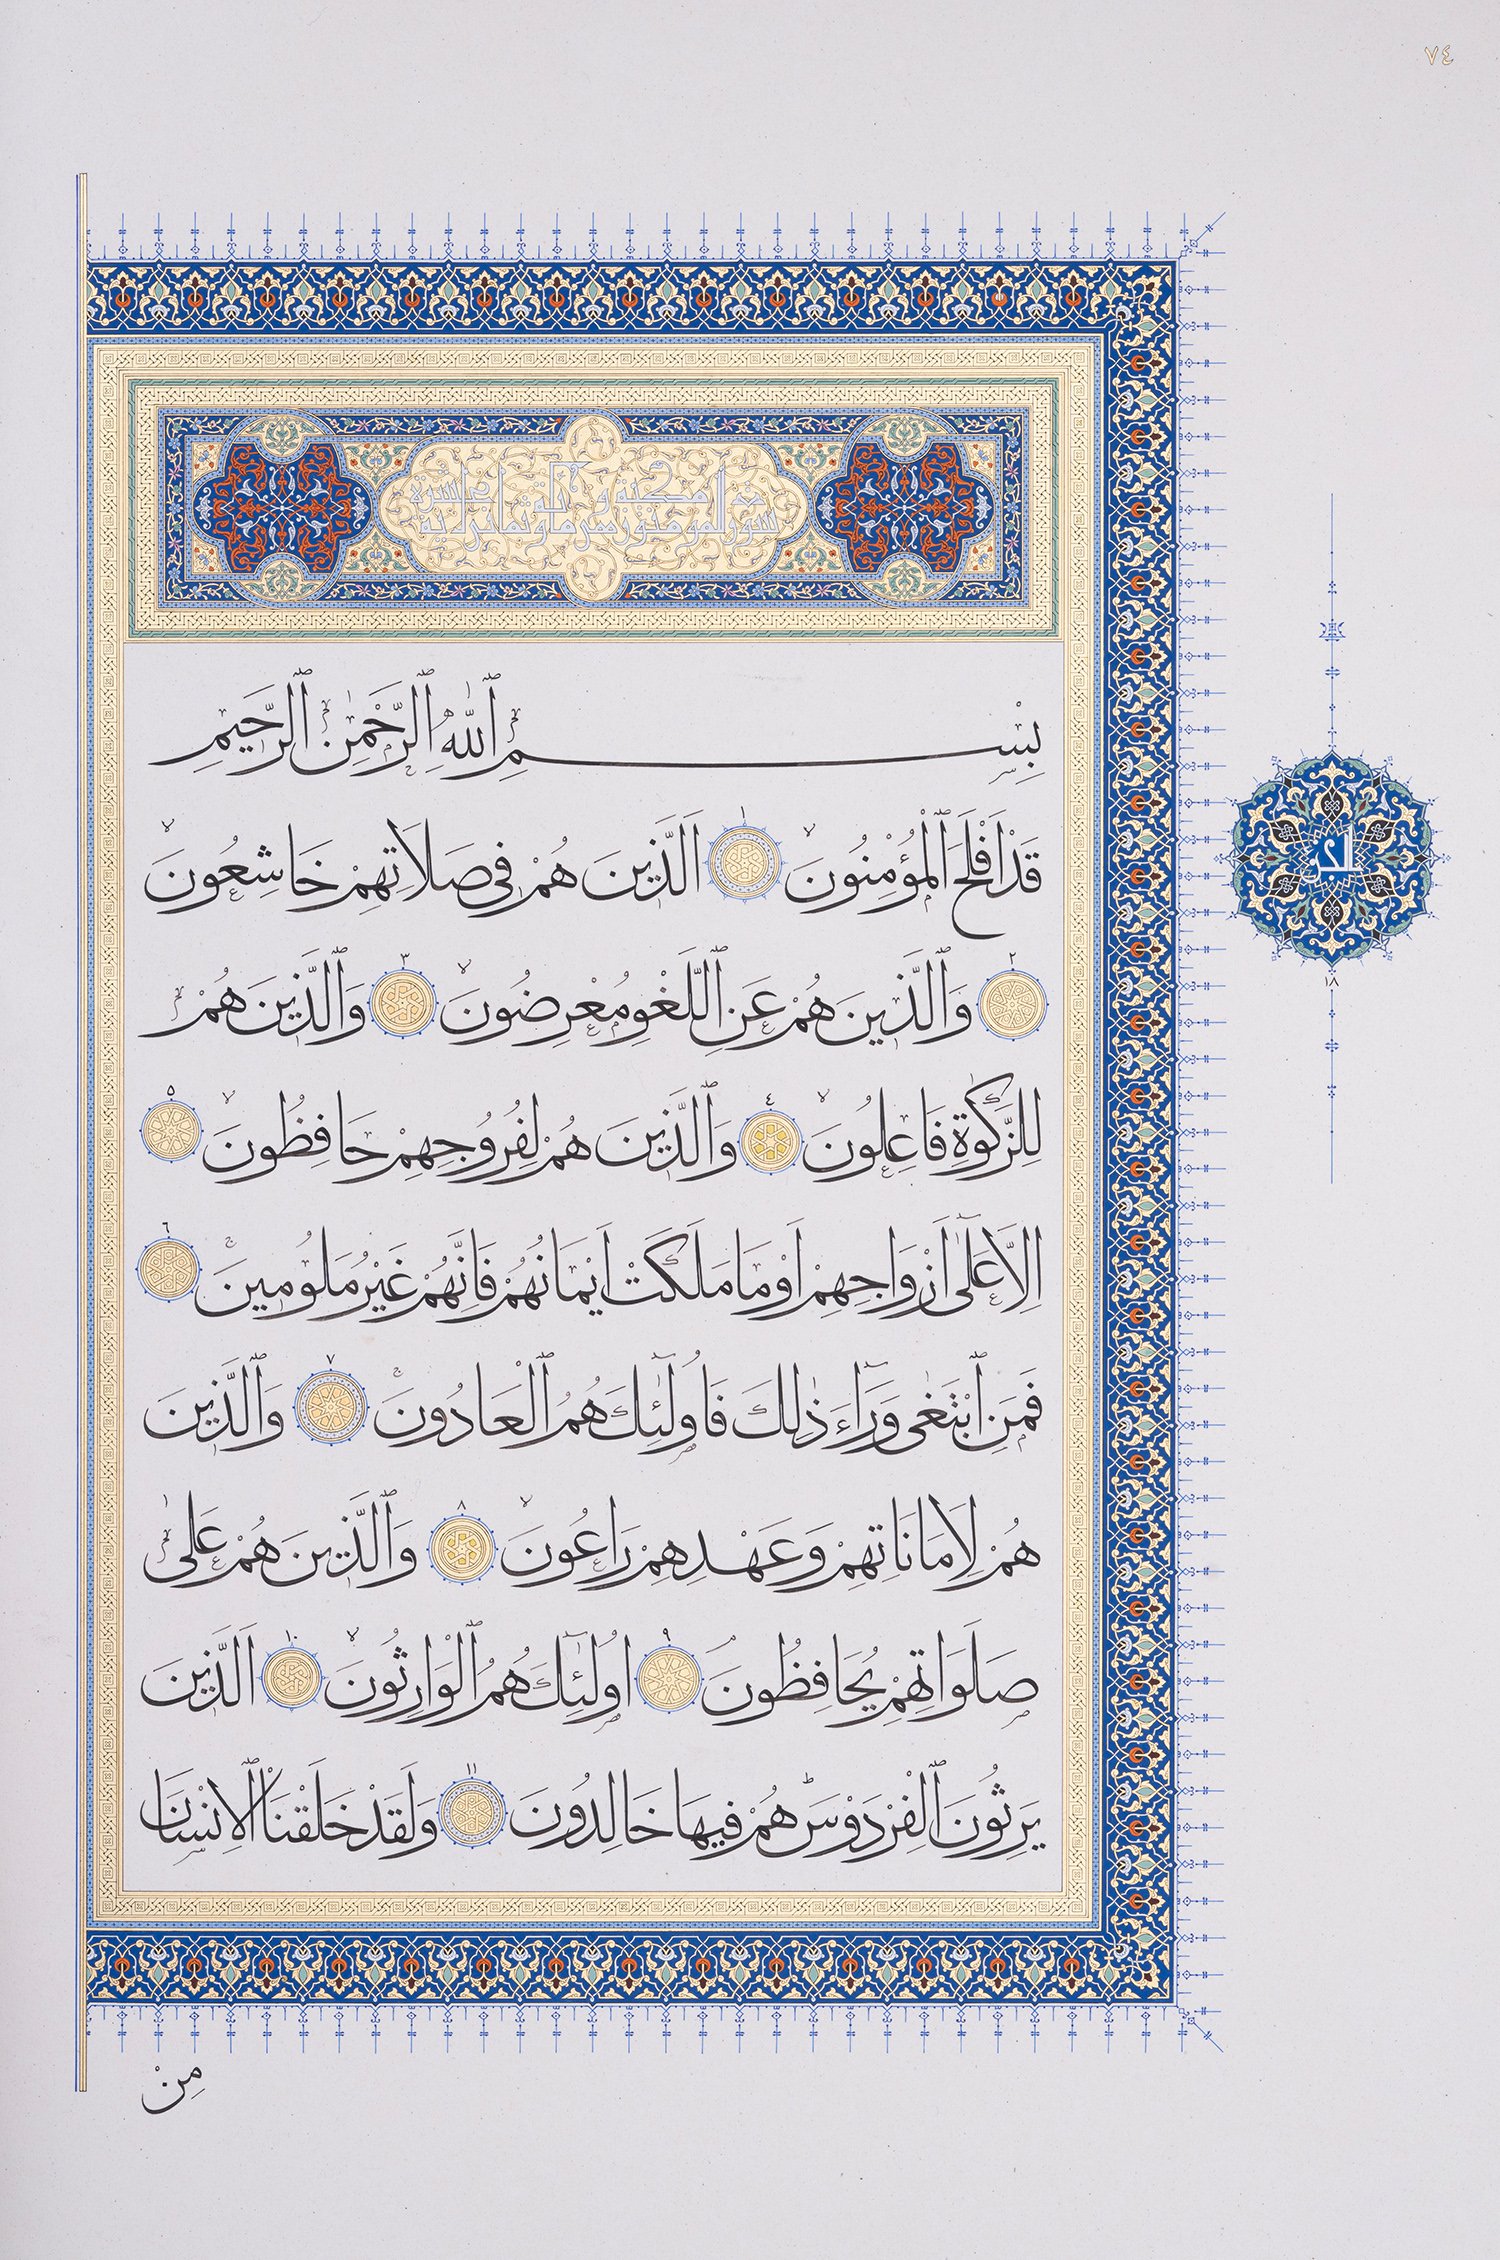 ٧٤
بِسْمِ ٱللّٰهِ ٱلرَّحْمٰنِ ٱلرَّحِيمِ
قَدْ اَفْلَحَ ٱلْمُؤْمِنُونَۙ ١ اَلَّذِينَ هُمْ فِى صَلَاتِهِمْ خَاشِعُونَۙ
٢ وَٱلَّذِينَ هُمْ عَنِ ٱللَّغْوِ مُعْرِضُونَۙ ٣ وَٱلَّذِينَ هُمْ
لِلزَّكٰوةِ فَاعِلُونَۙ ٤ وَٱلَّذِينَ هُمْ لِفُرُوجِهِمْ حَافِظُونَۙ ٥
اِلَّا عَلٰٓى اَزْوَاجِهِمْ اَوْ مَا مَلَكَتْ اَيْمَانُهُمْ فَاِنَّهُمْ غَيْرُ مَلُومِينَۚ ٦
فَمَنِ ٱبْتَغٰى وَرَٓاءَ ذٰلِكَ فَاُو۬لٰٓئِكَ هُمُ ٱلْعَادُونَۚ ٧ وَٱلَّذِينَ
هُمْ لِاَمَانَاتِهِمْ وَعَهْدِهِمْ رَاعُونَۙ ٨ وَٱلَّذِينَ هُمْ عَلٰى
صَلَوَاتِهِمْ يُحَافِظُونَۘ ٩ اُو۬لٰٓئِكَ هُمُ ٱلْوَارِثُونَۙ ١٠ اَلَّذِينَ
يَرِثُونَ ٱلْفِرْدَوْسَۜ هُمْ فِيهَا خَالِدُونَ ١١ وَلَقَدْ خَلَقْنَا ٱلْاِنْسَانَ
مِنْ
١٨